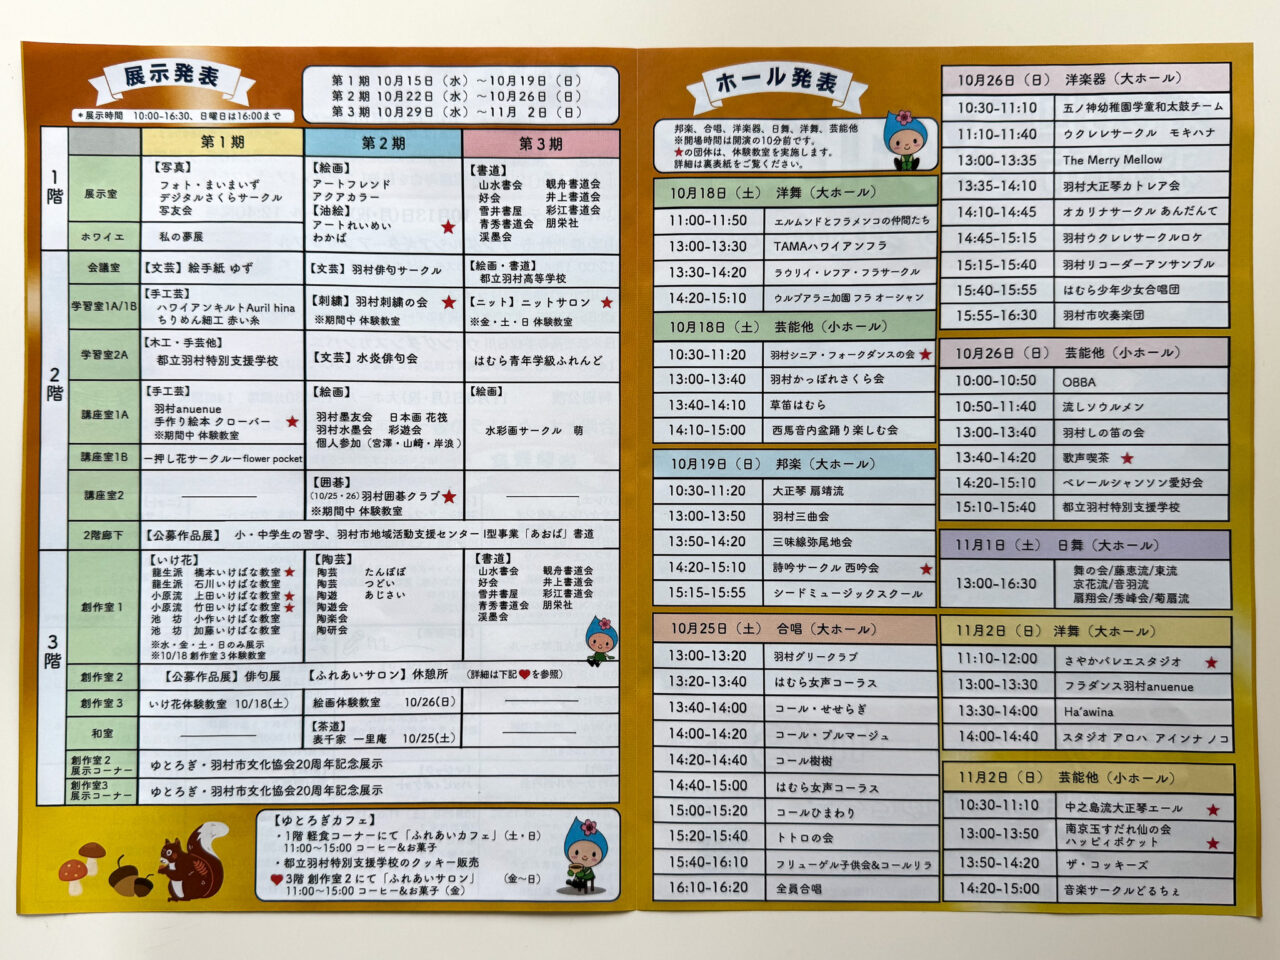 展示発表
＊展示時間 10:00-16:30、日曜日は16:00まで
第1期 10月15日（水）～10月19日（日）
第2期 10月22日（水）～10月26日（日）
第3期 10月29日（水）～11月 2日（日）
第1期 第2期 第3期
1階
展示室
【写真】
フォト・まいまいず
デジタルさくらサークル
写友会
【絵画】
アートフレンド
アクアカラー
【油絵】
アートれいめい ★
わかば
【書道】
山水書会 観舟書道会
好会 井上書道会
雪井書屋 彩江書道会
青秀書道会 朋栄社
渓墨会
ホワイエ 私の夢展
2階
会議室 【文芸】絵手紙 ゆず 【文芸】羽村俳句サークル 【絵画・書道】
都立羽村高等学校
学習室1A/1B
【手工芸】
ハワイアンキルトAuril hina
ちりめん細工 赤い糸
【刺繍】羽村刺繍の会 ★
※期間中 体験教室
【ニット】ニットサロン ★
※金・土・日 体験教室
学習室2A
【木工・手芸他】
都立羽村特別支援学校
【文芸】水炎俳句会
はむら青年学級ふれんど
講座室1A
【手工芸】
羽村anuenue
手作り絵本 クローバー ★
※期間中 体験教室
【絵画】
羽村墨友会 日本画 花筏
羽村水墨会 彩遊会
個人参加（宮澤・山﨑・岸浪）
【絵画】
水彩画サークル 萌
講座室1B 一押し花サークルーflower pocket
講座室2
【囲碁】
（10/25・26）羽村囲碁クラブ ★
※期間中 体験教室
2階廊下 【公募作品展】 小・中学生の習字、羽村市地域活動支援センターⅠ型事業「あおば」書道
3階
創作室1
【いけ花】
龍生派 橋本いけばな教室 ★
龍生派 石川いけばな教室
小原流 上田いけばな教室 ★
小原流 竹田いけばな教室 ★
池 坊 小作いけばな教室
池 坊 加藤いけばな教室
※水・金・土・日のみ展示
※10/18 創作室3体験教室
【陶芸】
陶芸 たんぽぽ
陶芸 つどい
陶遊 あじさい
陶遊会
陶楽会
陶研会
【書道】
山水書会 観舟書道会
好会 井上書道会
雪井書屋 彩江書道会
青秀書道会 朋栄社
渓墨会
創作室2 【公募作品展】俳句展 【ふれあいサロン】休憩所 （詳細は下記♥を参照）
創作室3 いけ花体験教室 10/18(土) 絵画体験教室 10/26(日)
和室 【茶道】
表千家 一里庵 10/25(土)
創作室2
展示コーナー ゆとろぎ・羽村市文化協会20周年記念展示
創作室3
展示コーナー ゆとろぎ・羽村市文化協会20周年記念展示
【ゆとろぎカフェ】
・1階 軽食コーナーにて「ふれあいカフェ」（土・日）
11:00～15:00 コーヒー&お菓子
・都立羽村特別支援学校のクッキー販売
♥3階 創作室2にて「ふれあいサロン」 （金～日）
11:00～15:00 コーヒー&お菓子（金）
ホール発表
邦楽、合唱、洋楽器、日舞、洋舞、芸能他
※開場時間は開演の10分前です。
★の団体は、体験教室を実施します。
詳細は裏表紙をご覧ください。
10月18日（土） 洋舞（大ホール）
11:00-11:50 エルムンドとフラメンコの仲間たち
13:00-13:30 TAMAハワイアンフラ
13:30-14:20 ラウリイ・レフア・フラサークル
14:20-15:10 ウルプアラニ加園 フラ オーシャン
10月18日（土） 芸能他（小ホール）
10:30-11:20 羽村シニア・フォークダンスの会 ★
13:00-13:40 羽村かっぽれさくら会
13:40-14:10 草笛はむら
14:10-15:00 西馬音内盆踊り楽しむ会
10月19日（日） 邦楽（大ホール）
10:30-11:20 大正琴 扇靖流
13:00-13:50 羽村三曲会
13:50-14:20 三味線弥尾地会
14:20-15:10 詩吟サークル 西吟会 ★
15:15-15:55 シードミュージックスクール
10月25日（土） 合唱（大ホール）
13:00-13:20 羽村グリークラブ
13:20-13:40 はむら女声コーラス
13:40-14:00 コール・せせらぎ
14:00-14:20 コール・プルマージュ
14:20-14:40 コール樹樹
14:40-14:55 はむら女声コーラス
15:00-15:20 コールひまわり
15:20-15:40 トトロの会
15:40-16:10 フリューゲル子供会&コールリラ
16:10-16:20 全員合唱
10月26日（日） 洋楽器（大ホール）
10:30-11:10 五ノ神幼稚園学童和太鼓チーム
11:10-11:40 ウクレレサークル モキハナ
13:00-13:35 The Merry Mellow
13:35-14:10 羽村大正琴カトレア会
14:10-14:45 オカリナサークル あんだんて
14:45-15:15 羽村ウクレレサークルロケ
15:15-15:40 羽村リコーダーアンサンブル
15:40-15:55 はむら少年少女合唱団
15:55-16:30 羽村市吹奏楽団
10月26日（日） 芸能他（小ホール）
10:00-10:50 OBBA
10:50-11:40 流しソウルメン
13:00-13:40 羽村しの笛の会
13:40-14:20 歌声喫茶 ★
14:20-15:10 ベレールシャンソン愛好会
15:10-15:40 都立羽村特別支援学校
11月1日（土） 日舞（大ホール）
13:00-16:30 舞の会/藤恵流/東流
京花流/音羽流
扇翔会/秀峰会/菊扇流
11月2日（日） 洋舞（大ホール）
11:10-12:00 さやかバレエスタジオ ★
13:00-13:30 フラダンス羽村anuenue
13:30-14:00 Ha'awina
14:00-14:40 スタジオ アロハ アインナ ノコ
11月2日（日） 芸能他（小ホール）
10:30-11:10 中之島流大正琴エール ★
13:00-13:50 南京玉すだれ仙の会
ハッピィポケット ★
13:50-14:20 ザ・コッキーズ
14:20-15:00 音楽サークルどるちぇ